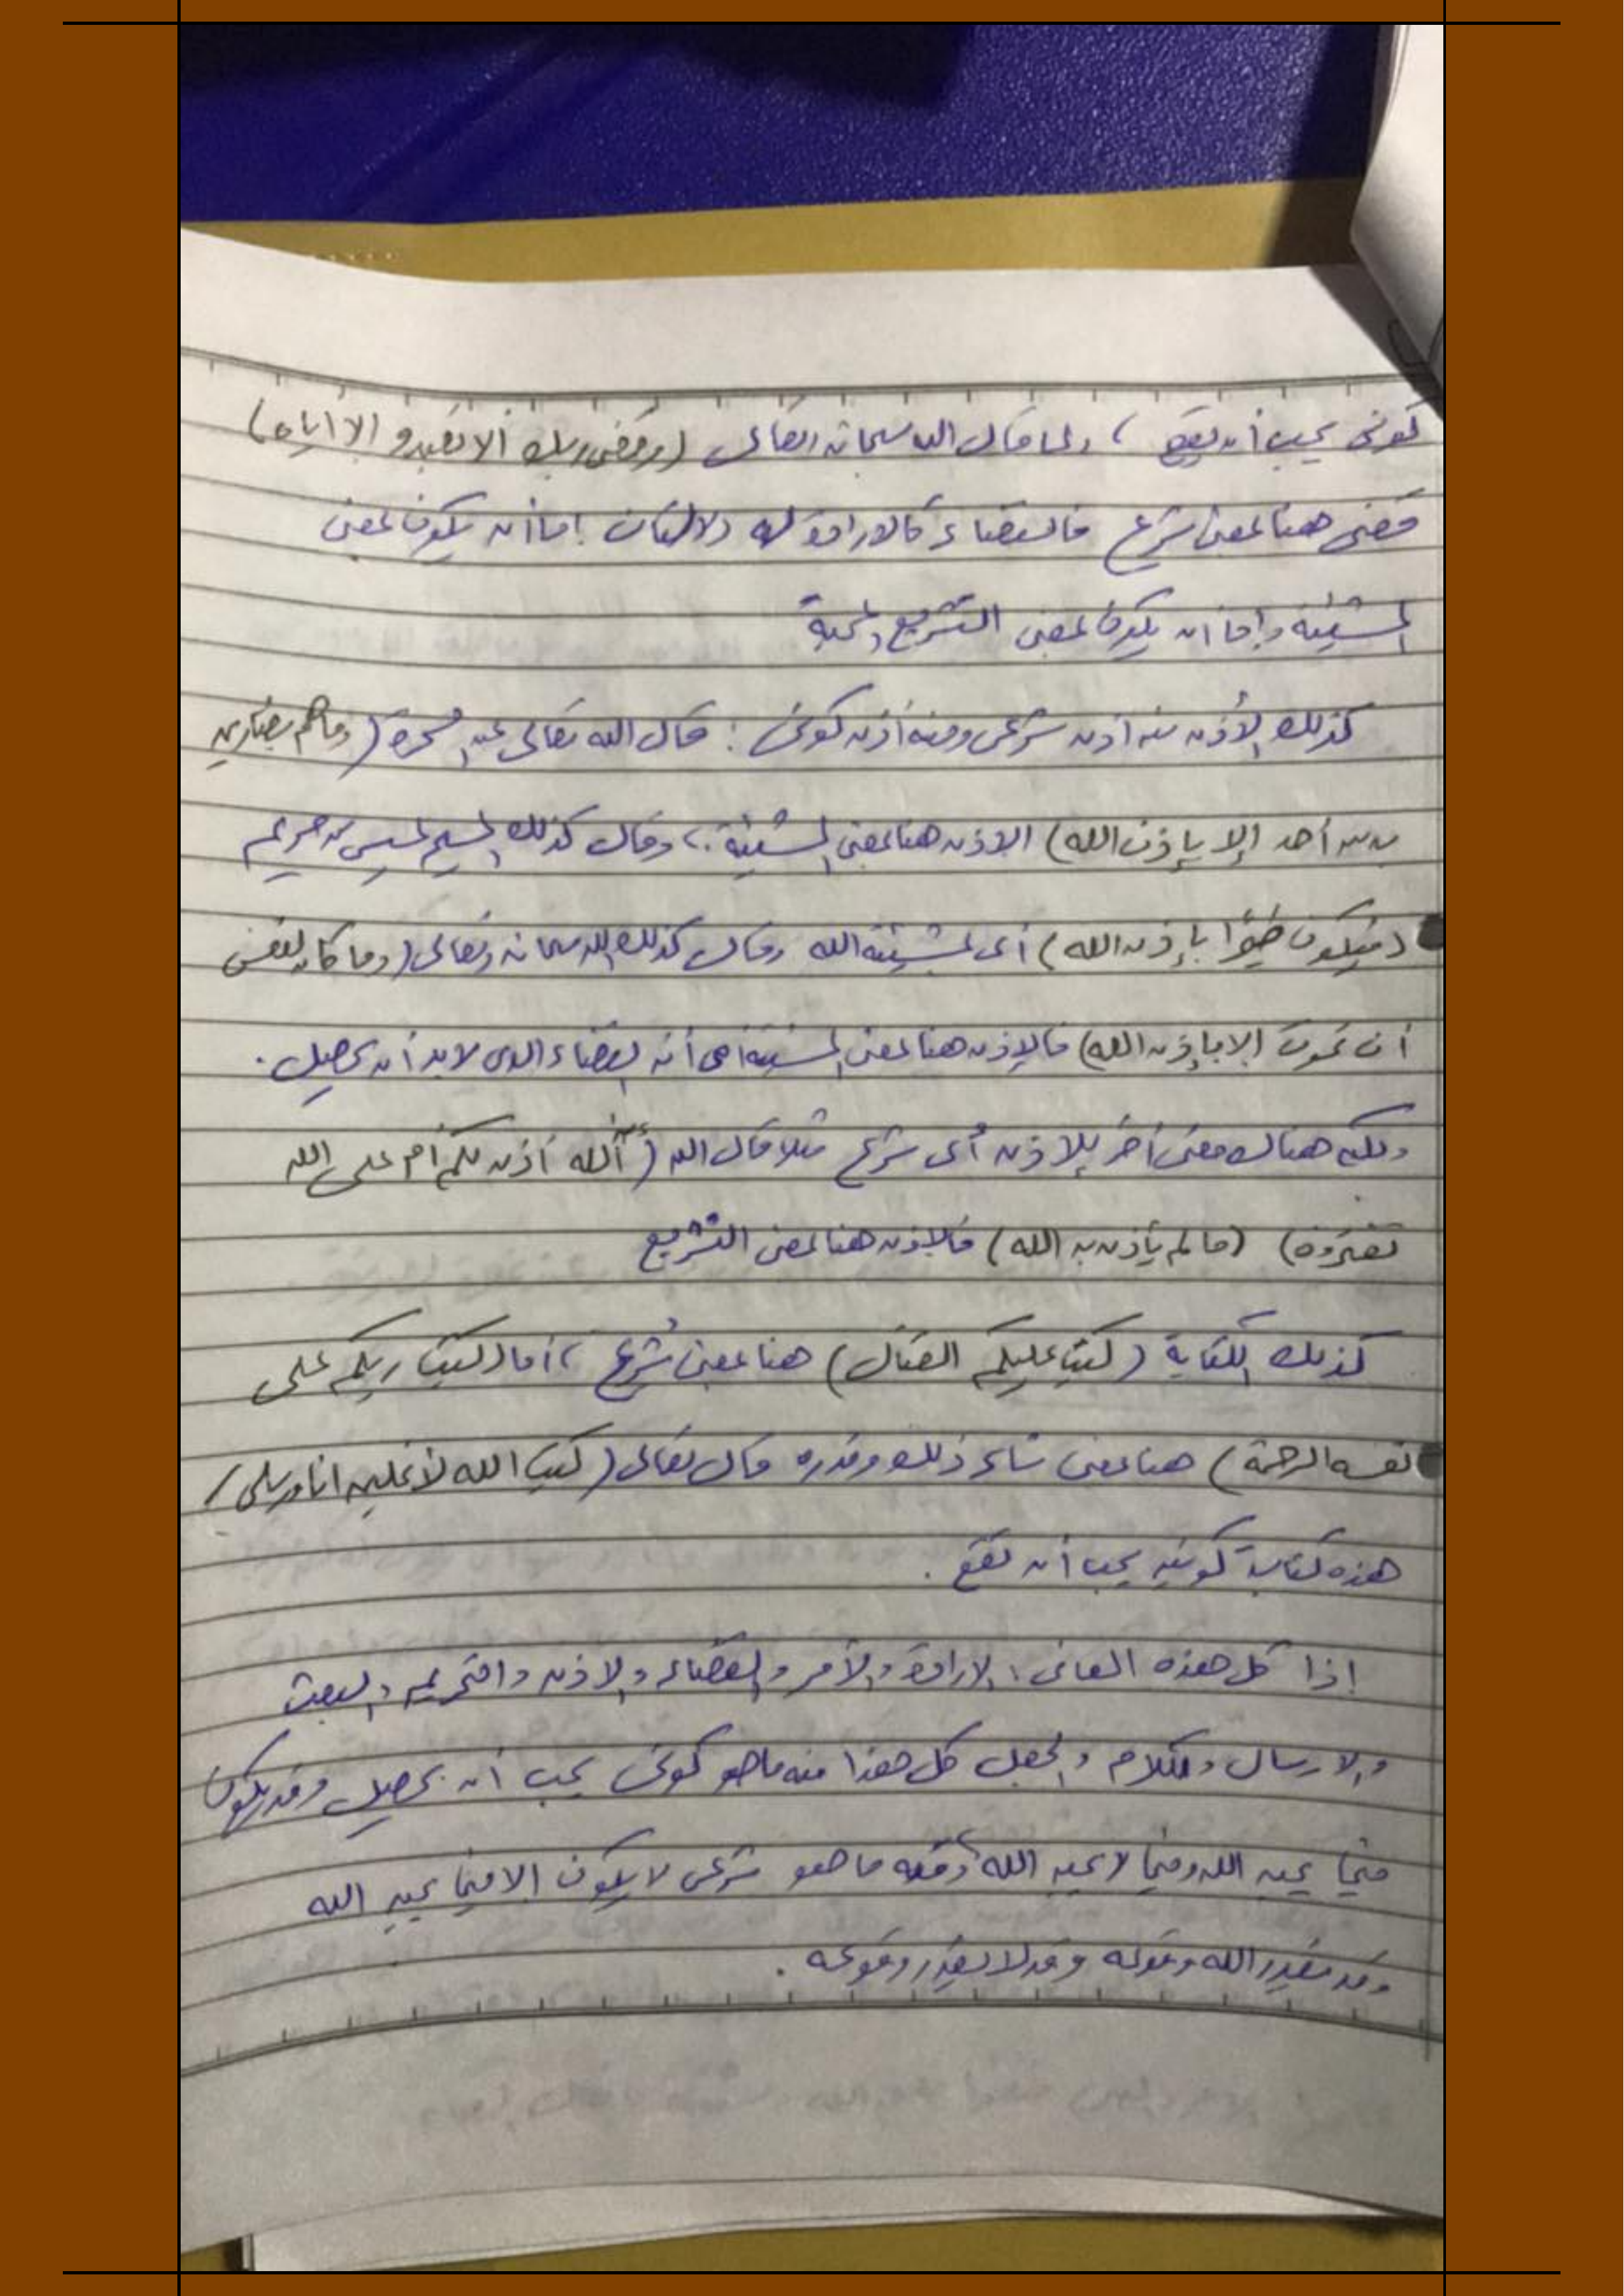 كونى يجب أن يقع ، ولما قال الله سبحانه وتعالى (وقضى ربك ألا تعبدو إلا اياه)
قضى هنا بمعنى شرع فالقضاء كالارادة له دلالتان إما أن يكون بمعنى
المشيئة وإما ان يكون بمعنى التشريع والمحبة
كذلك الأذن منه أذن شرعى ومنه أذن كونى : قال الله تعالى عن السحرة (وماهم بضارين
به من أحد إلا بإذن الله) الاذن هنا بمعنى المشيئة ، وقال كذلك المسيح عيسى بن مريم
(فيكون طيرًا بإذن الله) أى بمشيئة الله وقال كذلك الله سبحانه وتعالى (وما كان لنفس
أن تموت إلا بإذن الله) فالإذن هنا بمعنى المشيئة أى أنه القضاء الذى لابد أن يحصل .
ولكن هناك معنى أخر للاذن أى شرع مثلا قال الله (ءآلله أذن لكم أم على الله
تفترون) (مالم يأذن به الله) فالإذن هنا بمعنى التشريع
كذلك الكتابة (كتب عليكم القتال) هنا بمعنى شرع ، أما (كتب ربكم على
نفسه الرحمة) هنا بمعنى شاء ذلك وقدره قال تعالى (كتب الله لأغلبن انا ورسلى)
هذه كتابة كونيه يجب أن تقع .
إذا كل هذه المعانى : الارادة والأمر والقضاء والاذن والتحريم والبعث
والارسال والكلام والجعل كل هذا منه ماهو كونى يجب أن يحصل وقد يكون
فيما يحبه الله وفيما لا يحبه الله ، ومنه ما هو شرعى لا يكون إلا فيما يحبه الله
وقد يقدر الله وقوعه وقد لا يقدر وقوعه .